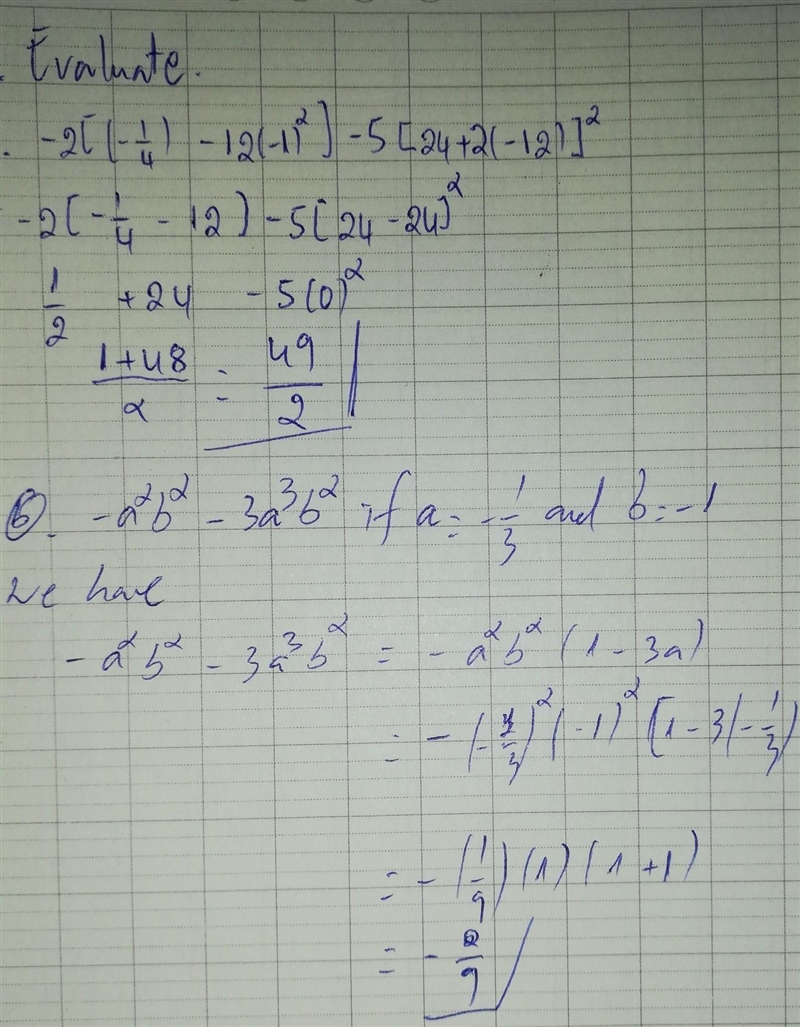 . Evaluate.
. -2[(-1/4) - 12(-1)²] - 5[24+2(-12)]²
-2[-1/4 - 12] - 5[24 - 24]²
1/2 + 24 - 5(0)²
(1+48)/2 = 49/2
6. -a²b² - 3a³b² if a = -1/3 and b = -1
we have
-a²b² - 3a³b² = -a²b²(1 - 3a)
= -(-1/3)²(-1)²[1 - 3(-1/3)
= -(1/9)(1)(1+1)
= -2/9